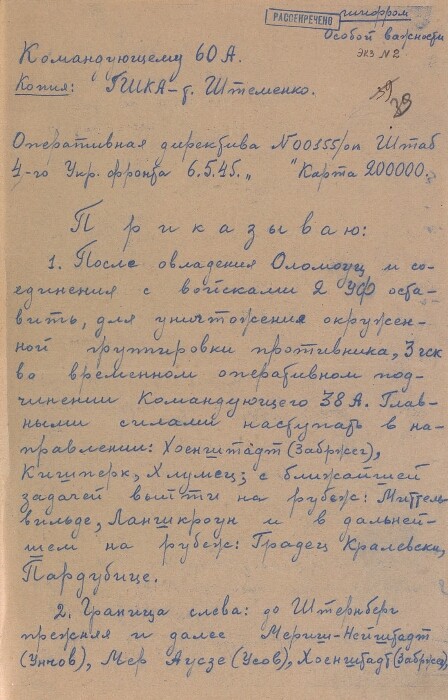 РАССЕКРЕЧЕНО
шифром
Особой важности
экз №2
Командующему 60 А.
Копия: ГШКА-т. Штеменко.
39
Оперативная директива №00155/оп Штаб
4-го Укр. фронта 6.5.45.„ "Карта 200000.
Приказываю:
1. После овладения Оломоуц и со-
единения с войсками 2 УФ оста-
вить, для уничтожения окружен-
ной группировки противника, 3 гск
во временном оперативном под-
чинении Командующего 38 А. Глав-
ными силами наступать в на-
правлении: Хоенштадт (Забржег),
Кишперк, Хлумец; с ближайшей
задачей выйти на рубеж: Миттель-
вильде, Ланшкроун и в дальней-
шем на рубеж: Градец Кралевски,
Пардубице.
2. Граница слева: до Штернберг
прежняя и далее Мериш-Нейштадт
(Уничов), Мер Аусзе (Усов), Хоенштадт (Забржег),